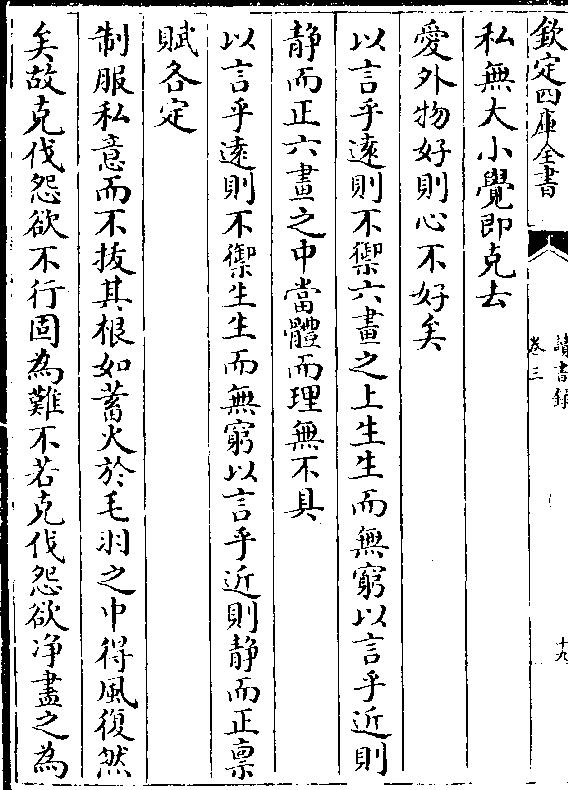 欽定四庫全書
讀書録
卷三
十九
私無大小覺即克去
愛外物好則心不好矣
以言乎逺則不禦六畫之上生生而無窮以言乎近則
静而正六畫之中當體而理無不具
以言乎逺則不禦生生而無窮以言乎近則静而正禀
賦各定
制服私意而不拔其根如蓄火於毛羽之中得風復然
矣故克伐怨欲不行固為難不若克伐怨欲净盡之為